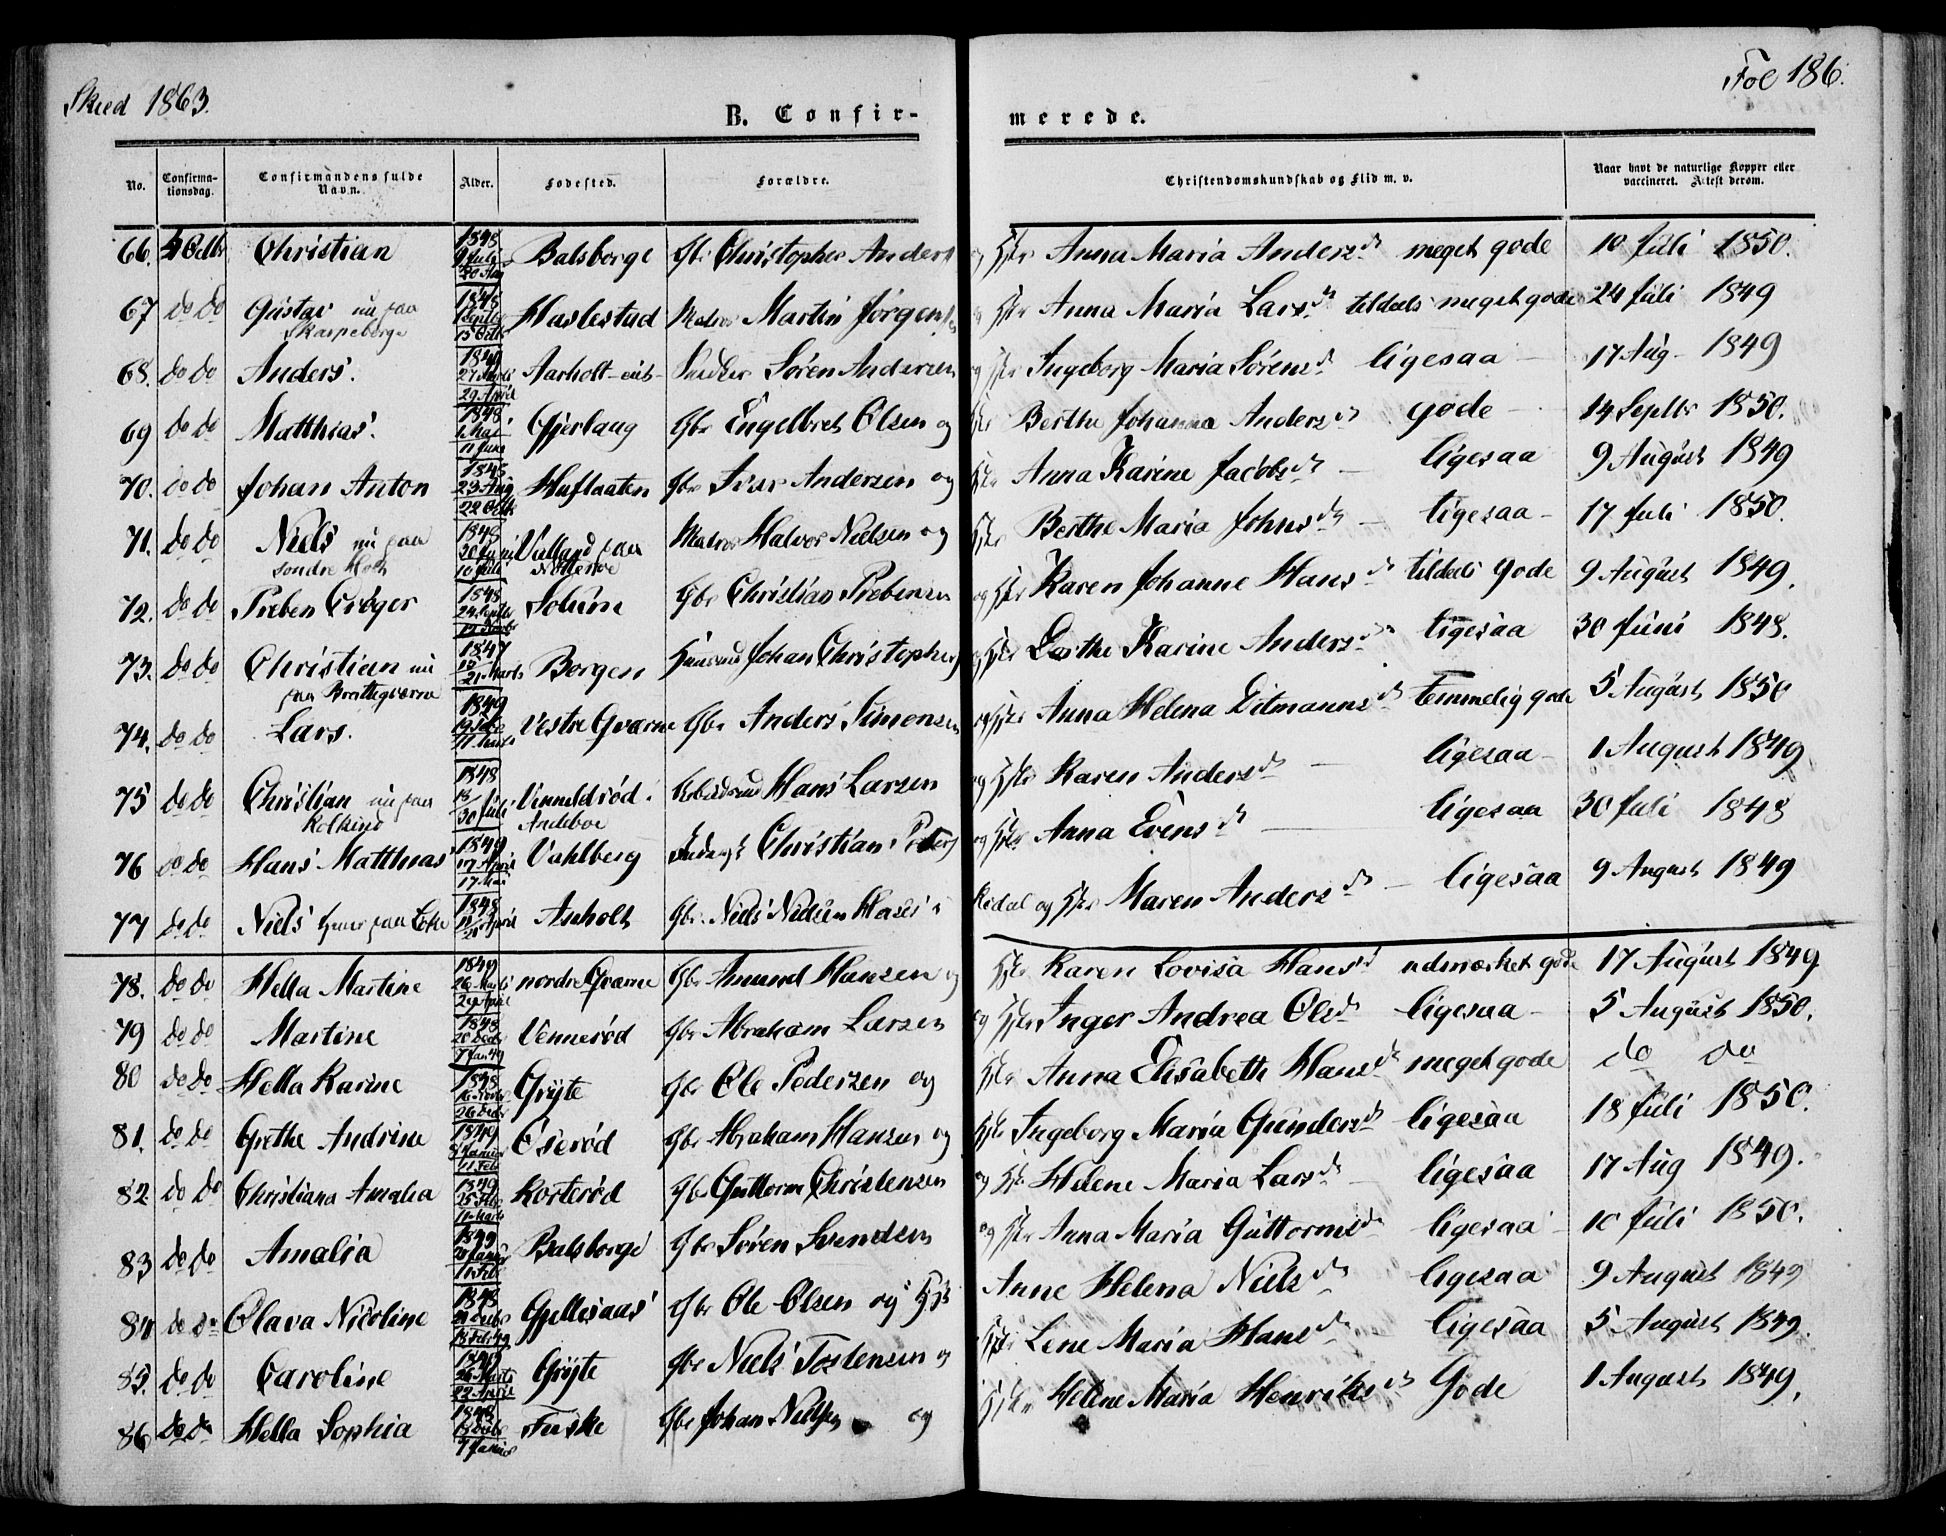 Skeed 1863.
Fol 186.
B. Confir-
merede.
No.
Confirma-
tionsdag.
Confirmandens fulde
Navn.
Alder.
Fødested.
Forældre.
Christendomskundskab og Flid m. v.
Naar havt de naturlige Kopper eller
vaccineret. Attest derom.
66. Christian 1848 9 Juli 20 Aug Balsberge Gbr Christopher Anders
og Hstr Anna Maria Andersd meget gode 10 Juli 1850.
67 do do Gustav nu paa Skarpeberge 1848 15 Haslestad Martin Jørgens
Hstr Anna Maria Larsd tildeels meget gode 24 Juli 1849
68. do do Anders. 1849 29 April Aarholt Søren Andersen
og Hstr Ingeborg Maria Sørensd ligesaa 17 Aug 1849
69 do do Matthias. 1848 6 Mai 11 Juni Gjerlaug Gbr Engelbret Olsen og
Hstr Berthe Johanna Andersd gode 14 Septbr 1850.
70. do do Johan Anton 1848 23 Aug 22 Octb Huflaaten Gbr Iver Andersen og
Hstr Anna Karine Jacobsd ligesaa 9 August 1849
71. do do Niels nu paa søndre Holt 1848 30 Juni 10 Juli paa Nøtterøe Halvor Nielsen og
Hstr Berthe Maria Johnsd ligesaa 17 Juli 1850.
72. do do Preben Crøger 1848 24 Septbr 12 Novbr Solum Gbr Christian Prebensen
og Hstr Karen Johanne Hansd tildeels Gode 9 August 1849.
73. do do Christian nu paa 1847 21 Marts Borgen Johan Christophers
Hstr Dorthe Karine Andersd ligesaa 30 Juni 1848.
74. do do Lars. 1849 11 Marts Vestre Qvarne Gbr Anders Simonsen
Hstr Anna Helena Ditmannsd temmelig gode 5 August 1850
75 do do Christian nu paa Kolkind 1848 30 Juli Andeboe Hans Larsen
og Hstr Karen Andersd ligesaa 1 August 1849
76 do do Hans Matthias 1849 17 April 17 Mai Vahlberg Christian Peders
og Hstr Anna Evensd ligesaa 30 Juli 1848
77 do do Niels 1848 April Anholt Gbr. Niels Nielsen
og Hstr Maren Andersd ligesaa 9 August 1849
78. do do Hella Martine 1849 26 Marts 29 April nordre Qvarne Gbr Amund Hansen og
Hstr Karen Lovisa Hansd udmærket gode 17 August 1849
79 do do Martine 1848 7 Jan 49 Vennerød Gbr Abraham Larsen
og Hstr Inger Andrea Olsd ligesaa 5 August 1850.
80 do do Hella Karine 1848 26 Decbr Gryte Gbr Ole Pedersen og
Hstr Anna Elisabeth Hansd meget gode do do
81. do do Grethe Andrine 1849 11 Feb Oserød Gbr Abraham Hansen og
Hstr Ingeborg Maria Gundersd ligesaa 18 Juli 1850.
82 do do Christiana Amalia 1849 25 Febr 11 Marts Korterød Gbr Guttorm Christensen
og Hstr Helene Maria Larsd ligesaa 17 Aug 1849.
83 do do Amalia 1849 11 Feb Balsberge Gbr Søren Svendsen
og Hstr Anna Maria Guttormsd ligesaa 10 Juli 1850.
84 do do Olava Nicoline 1848 18 Feb 49 Gjellesaas Gbr Ole Olsen og Hstr
Anne Helena Nielsd ligesaa 9 August 1849
85. do do Caroline 1849 26 Marts 22 April Gryte Gbr Niels Tostensen og
Hstr Lene Maria Hansd ligesaa 5 August 1849.
86 do do Hella Sophia 1848 7 Januar Fuske Gbr Johan Nielsen og
Hstr Helene Maria Henriksd Gode 1 August 1849.